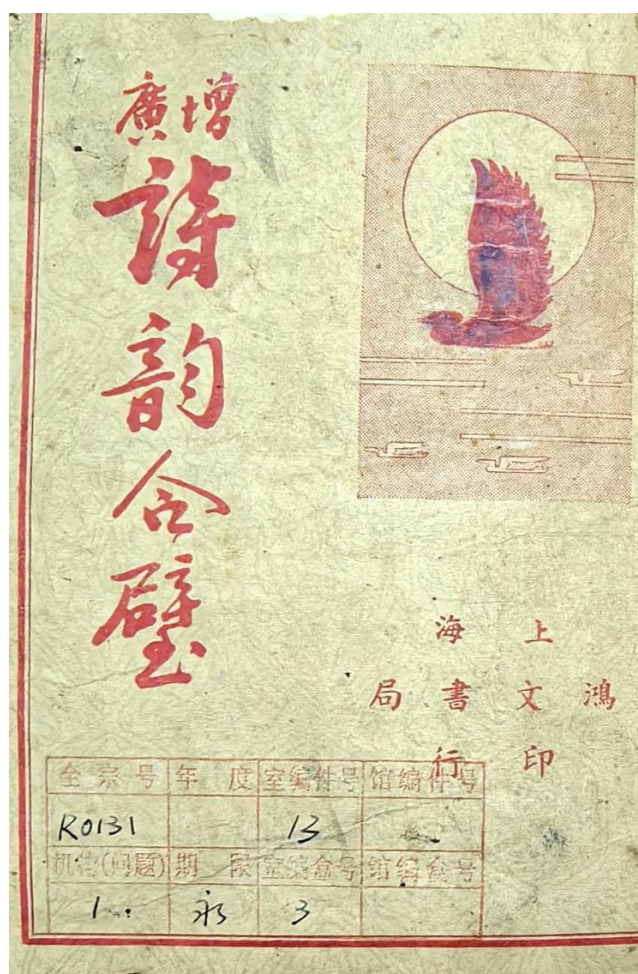 增廣
詩韵合璧
上海
鴻文書局
印行
全宗号 年度 室编件号 馆编件号
R0131 13
机构(问题) 期限 室编盒号 馆编盒号
1 永 3